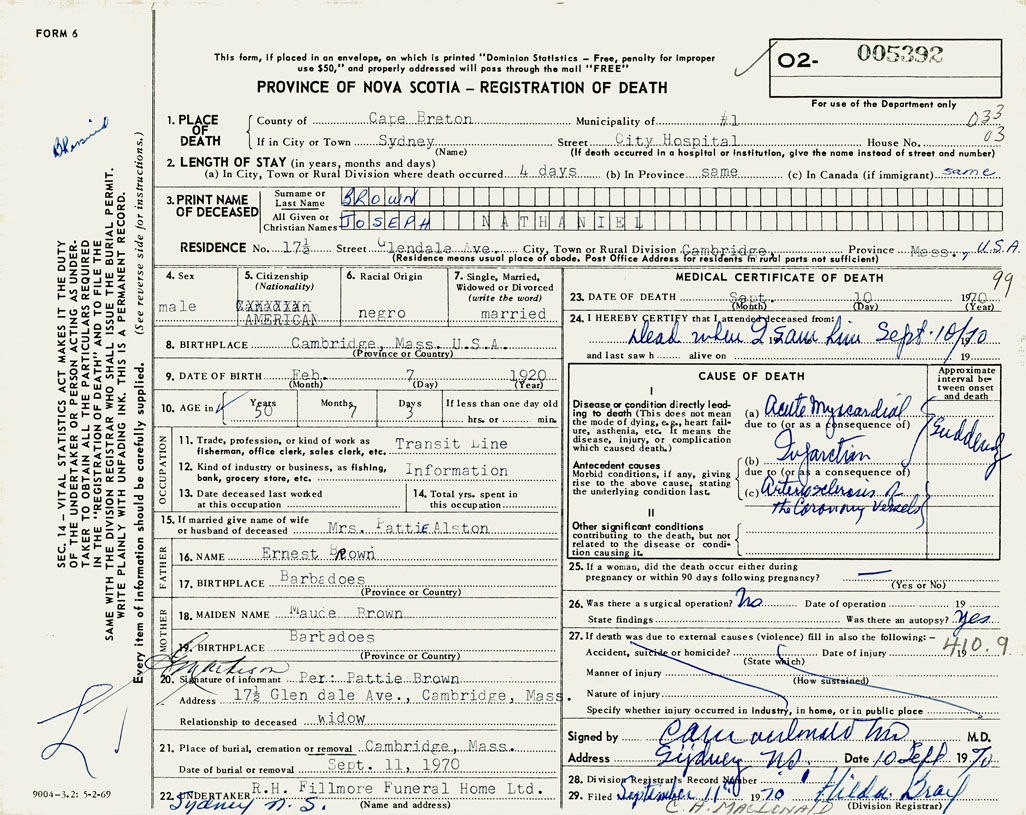 FORM 6
This form, if placed in an envelope, on which is printed "Dominion Statistics – Free, penalty for improper
use $50," and properly addressed will pass through the mail "FREE"
PROVINCE OF NOVA SCOTIA – REGISTRATION OF DEATH
O2- 005392
For use of the Department only
033
03
1. PLACE OF DEATH
County of Cape Breton Municipality of #1
If in City or Town Sydney Street City Hospital House No.
(Name) (If death occurred in a hospital or institution, give the name instead of street and number)
2. LENGTH OF STAY (in years, months and days)
(a) In City, Town or Rural Division where death occurred 4 days (b) In Province same (c) In Canada (if immigrant) same
3. PRINT NAME OF DECEASED
Surname or Last Name BROWN
All Given or Christian Names JOSEPH NATHANIEL
RESIDENCE No. 17½ Street Glendale Ave. City, Town or Rural Division Cambridge, Province Mass., U.S.A.
(Residence means usual place of abode. Post Office Address for residents in rural parts not sufficient)
4. Sex
male
5. Citizenship
(Nationality)
Canadian
AMERICAN
6. Racial Origin
negro
7. Single, Married,
Widowed or Divorced
(write the word)
married
8. BIRTHPLACE Cambridge, Mass. U.S.A.
(Province or Country)
9. DATE OF BIRTH Feb. 7 1920
(Month) (Day) (Year)
10. AGE in Years Months Days If less than one day old
50 7 3 hrs. or min.
OCCUPATION
11. Trade, profession, or kind of work as
fisherman, office clerk, sales clerk, etc. Transit Line
12. Kind of industry or business, as fishing,
bank, grocery store, etc. Information
13. Date deceased last worked
at this occupation
14. Total yrs. spent in
this occupation
15. If married give name of wife
or husband of deceased Mrs. Pattie Alston
FATHER
16. NAME Ernest Brown
17. BIRTHPLACE Barbadoes
(Province or Country)
MOTHER
18. MAIDEN NAME Maude Brown
19. BIRTHPLACE Barbadoes
(Province or Country)
20. Signature of informant Per: Pattie Brown
Address 17½ Glen dale Ave., Cambridge, Mass.
Relationship to deceased widow
21. Place of burial, cremation or removal Cambridge, Mass.
Date of burial or removal Sept. 11, 1970
22. UNDERTAKER R.H. Fillmore Funeral Home Ltd.
Sydney N.S. (Name and address)
MEDICAL CERTIFICATE OF DEATH
99
23. DATE OF DEATH Sept. 10 1970
(Month) (Day) (Year)
24. I HEREBY CERTIFY that I attended deceased from:
Dead when I saw him Sept. 10/70
19
and last saw h alive on 19
CAUSE OF DEATH
Approximate
interval be-
tween onset
and death
I
Disease or condition directly lead-
ing to death (This does not mean
the mode of dying, e.g., heart fail-
ure, asthenia, etc. It means the
disease, injury, or complication
which caused death.)
(a) Acute Myocardial
due to (or as a consequence of)
Infarction
Sudden
Antecedent causes
Morbid conditions, if any, giving
rise to the above cause, stating
the underlying condition last.
(b)
due to (or as a consequence of)
(c) Arteriosclerosis of
the Coronary Vessels
II
Other significant conditions
contributing to the death, but not
related to the disease or condi-
tion causing it.
25. If a woman, did the death occur either during
pregnancy or within 90 days following pregnancy? —
(Yes or No)
26. Was there a surgical operation? No Date of operation 19
State findings Was there an autopsy? Yes
27. If death was due to external causes (violence) fill in also the following: –
410.9
Accident, suicide or homicide? Date of injury 19
(State which)
Manner of injury
(How sustained)
Nature of injury
Specify whether injury occurred in industry, in home, or in public place
Signed by M.D.
Address Sydney NS. Date 10 Sept 1970
28. Division Registrar's Record Number
29. Filed September 11th 1970 Hilda Gray
C. A. MACDONALD (Division Registrar)
SEC. 14 – VITAL STATISTICS ACT MAKES IT THE DUTY
OF THE UNDERTAKER OR PERSON ACTING AS UNDER-
TAKER TO OBTAIN ALL THE PARTICULARS REQUIRED
IN THE "REGISTRATION OF DEATH" AND TO FILE THE
SAME WITH THE DIVISION REGISTRAR WHO SHALL ISSUE THE BURIAL PERMIT.
WRITE PLAINLY WITH UNFADING INK. THIS IS A PERMANENT RECORD.
Every item of information should be carefully supplied. (See reverse side for instructions.)
9004-3.2: 5-2-69